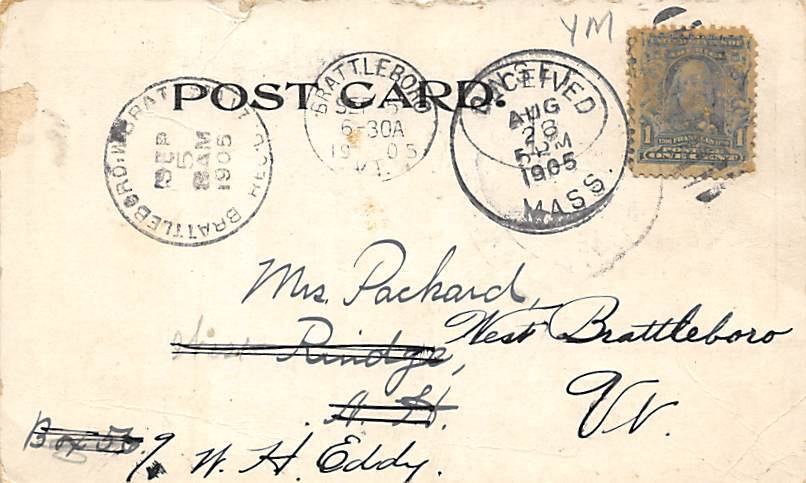 YM
POST CARD.
BRATTLEBORO
SEP 5
6-30A
1905
VT.
RECEIVED
AUG
28
5 PM
1905
MASS.
BRATTLEBORO
SEP
5
8 AM
1905
REC'D.
1
ONE CENT
Mrs. Packard,
Rindge, West Brattleboro
N. H. Vt.
Box 56.
% W. H. Eddy.